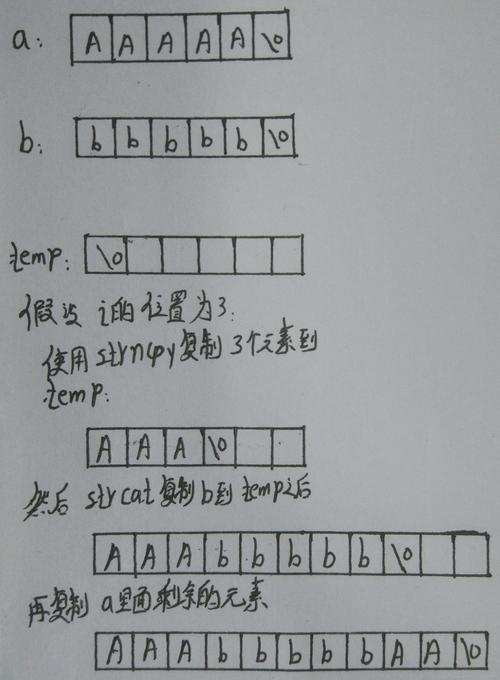 a: A A A A A \0
b: b b b b b \0
temp: \0
假设 i的位置为3:
使用strncpy复制3个元素到
temp:
A A A \0
然后 strcat复制b到temp之后
A A A b b b b b \0
再复制 a里面剩余的元素
A A A b b b b b A A \0